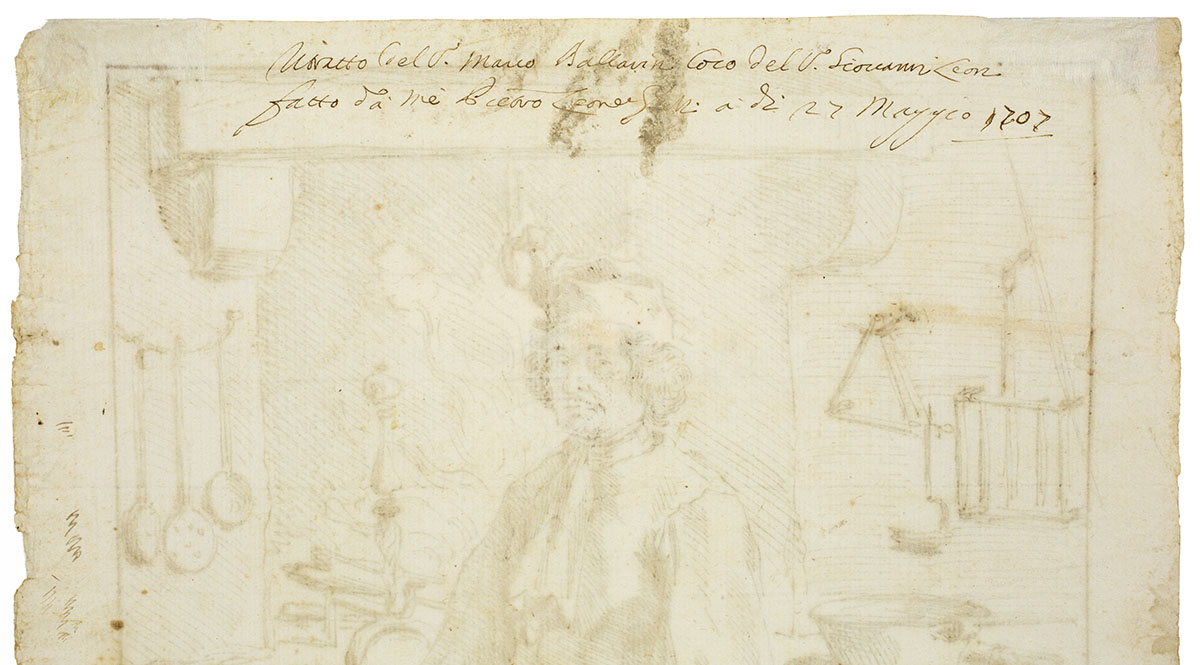 Ritratto del S.r Marco Ballarin Coco del S.r Giovanni Leon
fatto dà mè Pietro Leone a di 27 Maggio 1707